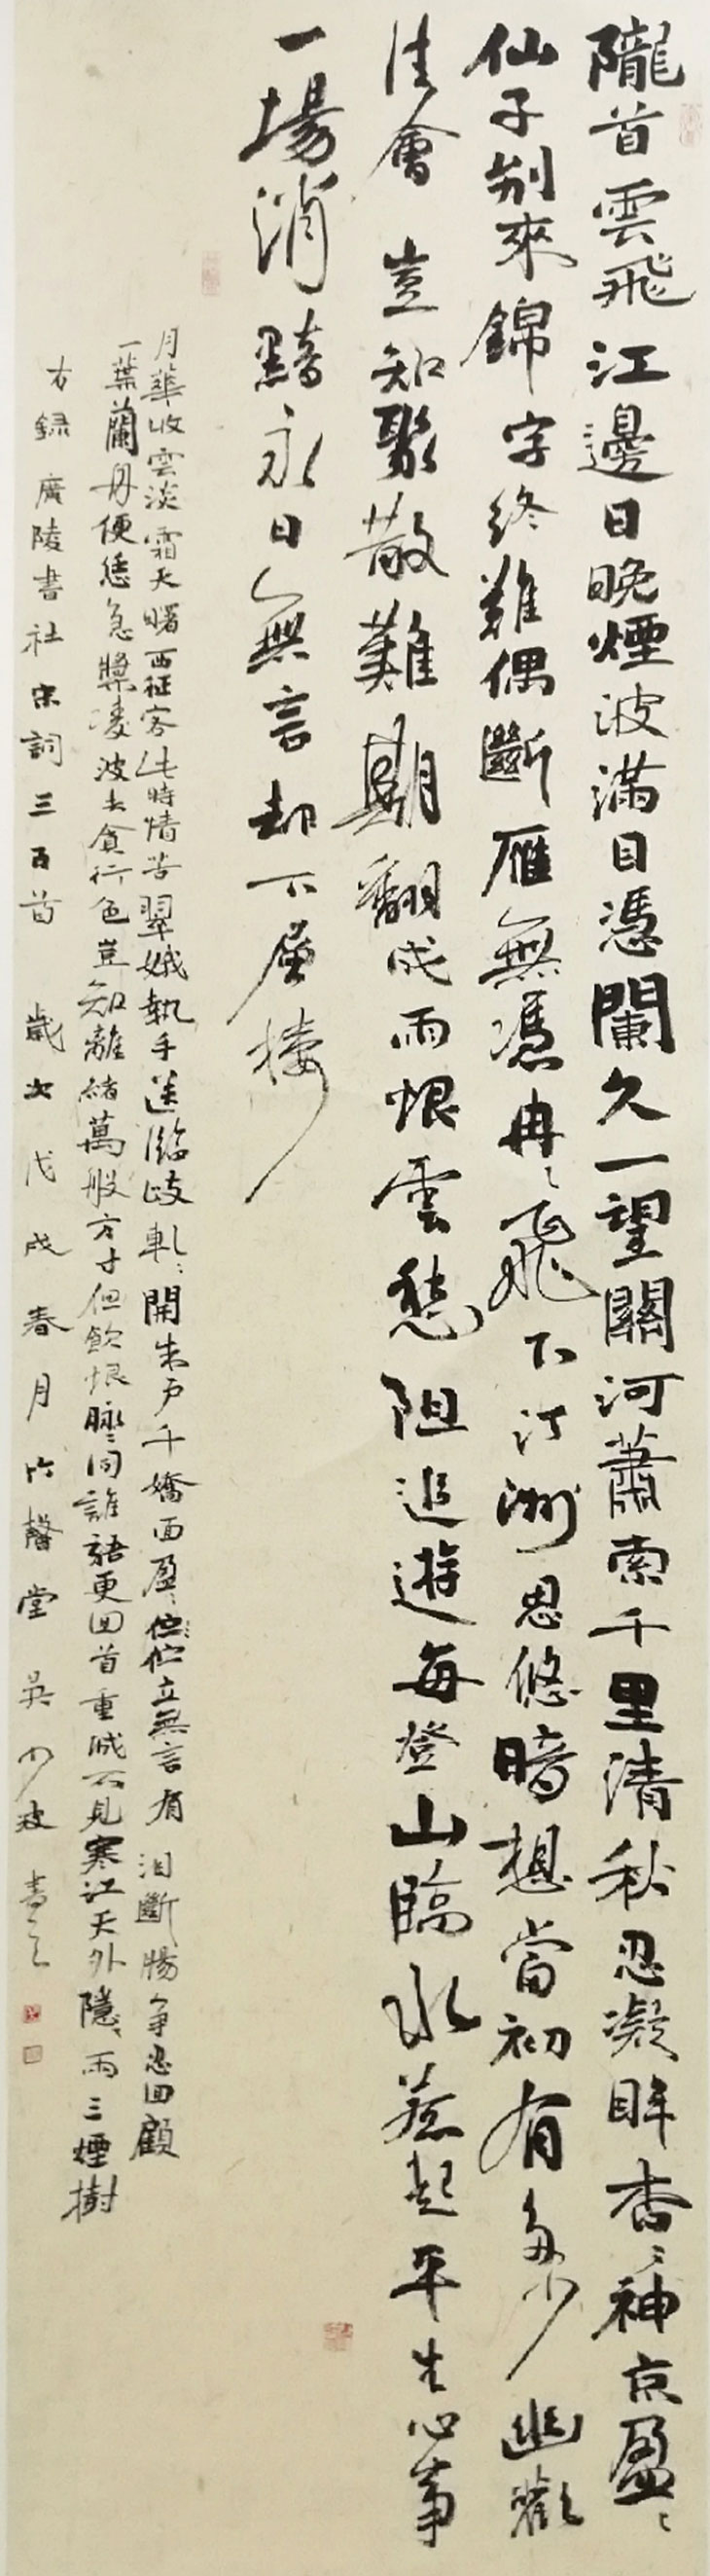 隴首雲飛江邊日晚煙波滿目憑闌久一望關河蕭索千里清秋忍凝眸杳〻神京盈〻
仙子別來錦字終難偶斷雁無憑冉〻飛下汀洲思悠暗想當初有多少幽歡
佳會豈知聚散難期翻成雨恨雲愁阻追遊每登山臨水惹起平生心事
一場消黯永日無言却下層樓
月華收雲淡霜天曙西征客此時情苦翠娥執手送臨歧軋〻開朱戶千嬌面盈〻佇立無言有淚斷腸爭忍回顧
一葉蘭舟便恁急槳凌波去貪行色豈知離緒萬般方寸但飲恨脈〻同誰語更回首重城不見寒江天外隱〻兩三煙樹
右録廣陵書社宋詞三百首 歲次戊戌春月六馨堂吳少波書之